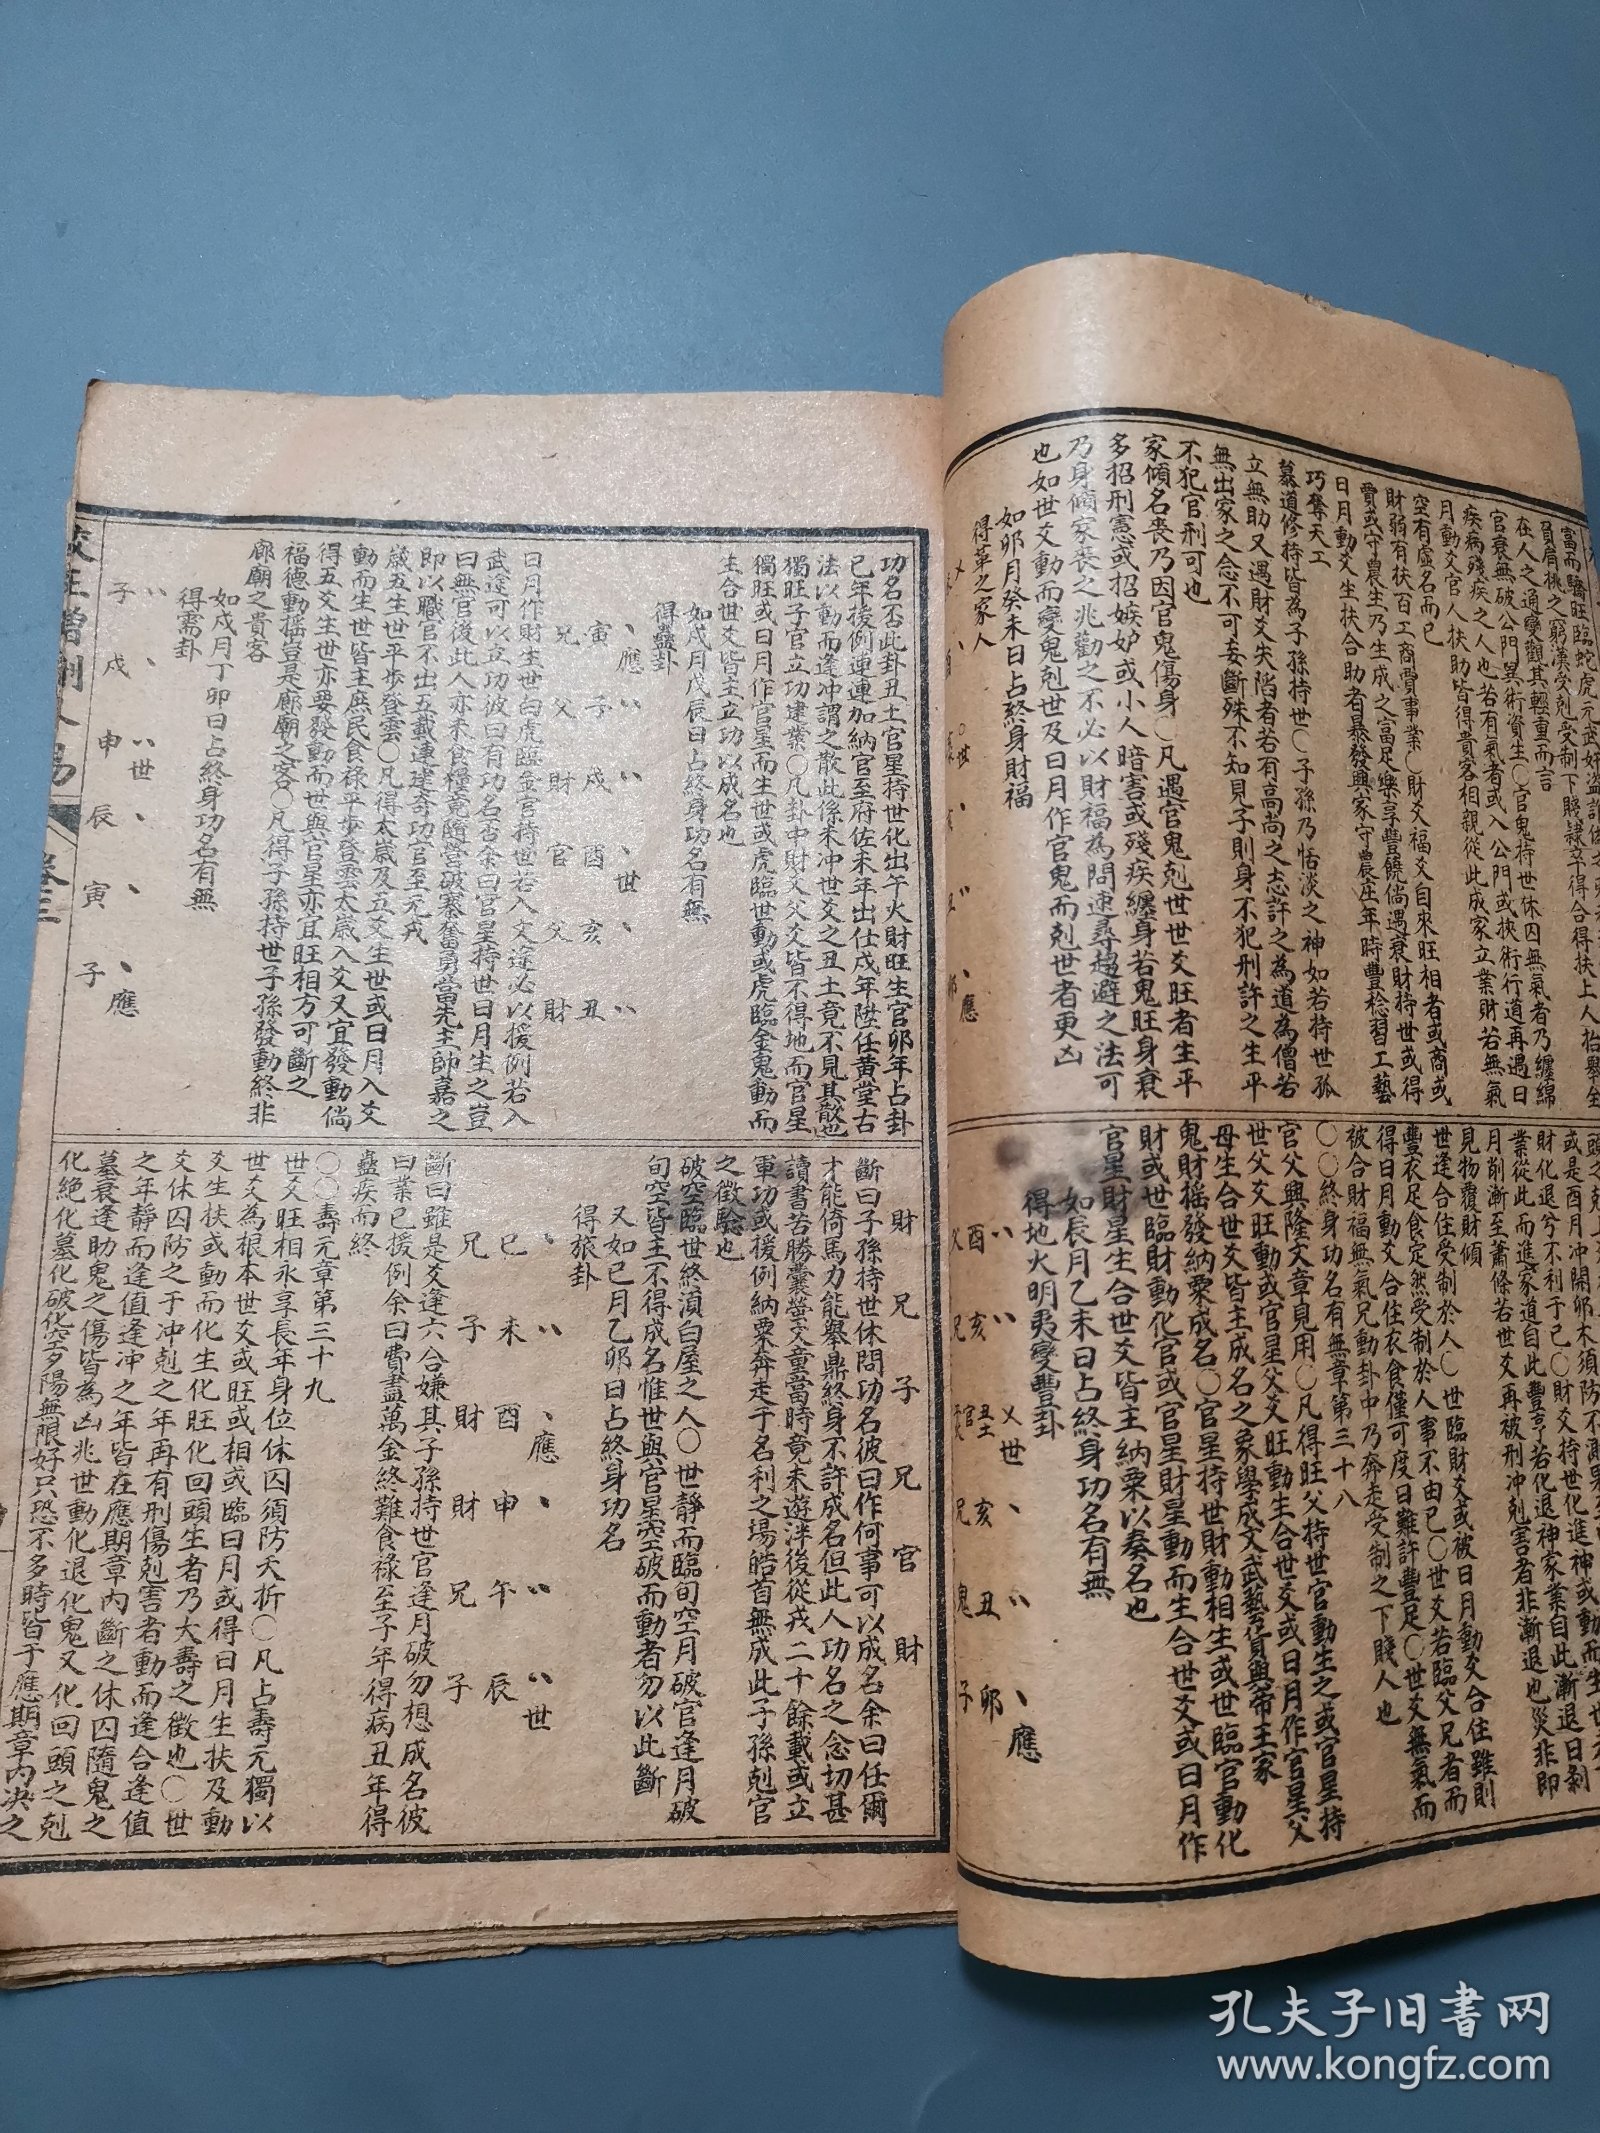 富而驕旺臨蛇虎元武奸盜詐偽之
負肩桃之窮漢受剋受制下賤隸卒得合得扶上人抬舉全
在人之通變觀其輕重而言
官衰無破公門異術資生〇官鬼持世休囚無氣者乃纏綿
疾病殘疾之人也若有氣者或入公門或挾術行道再遇日
月動爻官人扶助皆得貴客相親從此成家立業財若無氣
空有虛名而已
財弱有扶百工商賈事業〇財爻福爻自來旺相者或商或
賈或守農生乃生成之富足樂享豐饒倘遇衰財持世或得
日月動爻生扶合助者暴發興家守農庄年時豐稔習工藝
巧奪天工
慕道修持皆為子孫持世〇子孫乃恬淡之神如若持世孤
立無助又遇財爻失陷者若有高尚之志許之為道為僧若
無出家之念不可妄斷殊不知見子則身不犯刑許之生平
不犯官刑可也
家傾名喪乃因官鬼傷身〇凡遇官鬼剋世世爻旺者生平
多招刑憲或招嫉妒或小人暗害或殘疾纏身若鬼旺身衰
乃身傾家喪之兆勸之不必以財福為問速尋趨避之法可
也如世爻動而變鬼剋世及日月作官鬼而剋世者更凶
如卯月癸未日占終身財福
得革之家人
財化退兮不利于己〇財爻持世化進神或動而生世
業從此而進家道自此豐亨若化退神家業自此漸退日剝
月削漸至蕭條若世爻再被刑冲剋害者非漸退也災非即
見物覆財傾
世逢合住受制於人〇世臨財爻或被日月動爻合住雖則
豐衣足食定然受制於人事不由己〇世爻若臨父兄者而
得日月動爻合住衣食僅可度日難許豐足〇世爻無氣而
被合財福無氣兄動卦中乃奔走受制之下賤人也
〇〇終身功名有無章第三十八
官父興隆文章見用〇凡得旺父持世官動生之或官星持
世父爻旺動或官星父爻旺動生合世爻或日月作官星父
母生合世爻皆主成名之象學成文武藝貨與帝王家
鬼財搖發納粟成名〇官星持世財動相生或世臨官動化
財或世臨財動化官或官星財星動而生合世爻或日月作
官星財星生合世爻皆主納粟以奏名也
如辰月乙未日占終身功名有無
得地火明夷變豐卦
世 應
酉 亥 丑 亥 丑 卯
父 兄 官 兄 鬼 子
功名否此卦丑土官星持世化出午火財旺生官卯年占卦
已年援例連連加納官至府佐未年出仕戌年陞任黃堂古
法以動而逢冲謂之散此係未冲世爻之丑土竟不見其散也
獨旺子官立功建業〇凡卦中財爻父爻皆不得地而官星
獨旺或日月作官星而生世或虎臨世動或虎臨金鬼動而
生合世爻皆主立功以成名也
如戌月戊辰日占終身功名有無
得蠱卦
應 世
寅 子 戌 酉 亥 丑
兄 父 財 官 父 財
日月作財生世白虎臨金官持世若入文途必以援例若入
武途可以立功彼曰有功名否余曰官星持世日月生之豈
曰無官後此人亦未食糧竟隨營破寨奮勇當先主帥嘉之
即以職官不出五載連建奇功官至元戎
歲五生世平步登雲〇凡得太歲及五爻生世或日月入爻
動而生世世皆主庶民食祿平步登雲太歲入爻又宜發動倘
得五爻生世亦要發動而世與官星亦宜旺相方可斷之
福德動搖豈是廊廟之客〇凡得子孫持世子孫發動終非
廊廟之貴客
如戌月丁卯日占終身功名有無
得需卦
世 應
子 戌 申 辰 寅 子
財 兄 子 兄 官 財
斷曰子孫持世休問功名彼曰作何事可以成名余曰任爾
才能倚馬力能舉鼎終身不許成名但此人功名之念切甚
讀書苦勝囊螢文童當時竟未遊泮後從戎二十餘載或立
軍功或援例納粟奔走于名利之場皓首無成此子孫剋官
之徵驗也
破空臨世終須白屋之人〇世靜而臨旬空月破官逢月破
旬空皆主不得成名惟世與官星空破而動者勿以此斷
又如巳月乙卯日占終身功名
得旅卦
應 世
巳 未 酉 申 午 辰
兄 子 財 財 兄 子
斷曰雖是爻逢六合嫌其子孫持世官逢月破勿想成名彼
曰業已援例余曰費盡萬金終難食祿至子年得病丑年得
蠱疾而終
〇〇壽元章第三十九
世爻旺相永享長年身位休囚須防夭折〇凡占壽元獨以
世爻為根本世爻或旺或相或臨日月或得日月生扶及動
爻生扶或動而化生化旺化回頭生者乃大壽之徵也〇世
爻休囚防之于冲剋之年再有刑傷剋害者動而逢合逢值
之年靜而逢值逢冲之年皆在應期章內斷之休囚隨鬼之
墓衰逢助鬼之傷皆為凶兆世動化退化鬼又化回頭之剋
化絕化墓化破化空夕陽無限好只恐不多時皆于應期章內決之
增刪卜易
卷三
孔夫子旧书网
www.kongfz.com